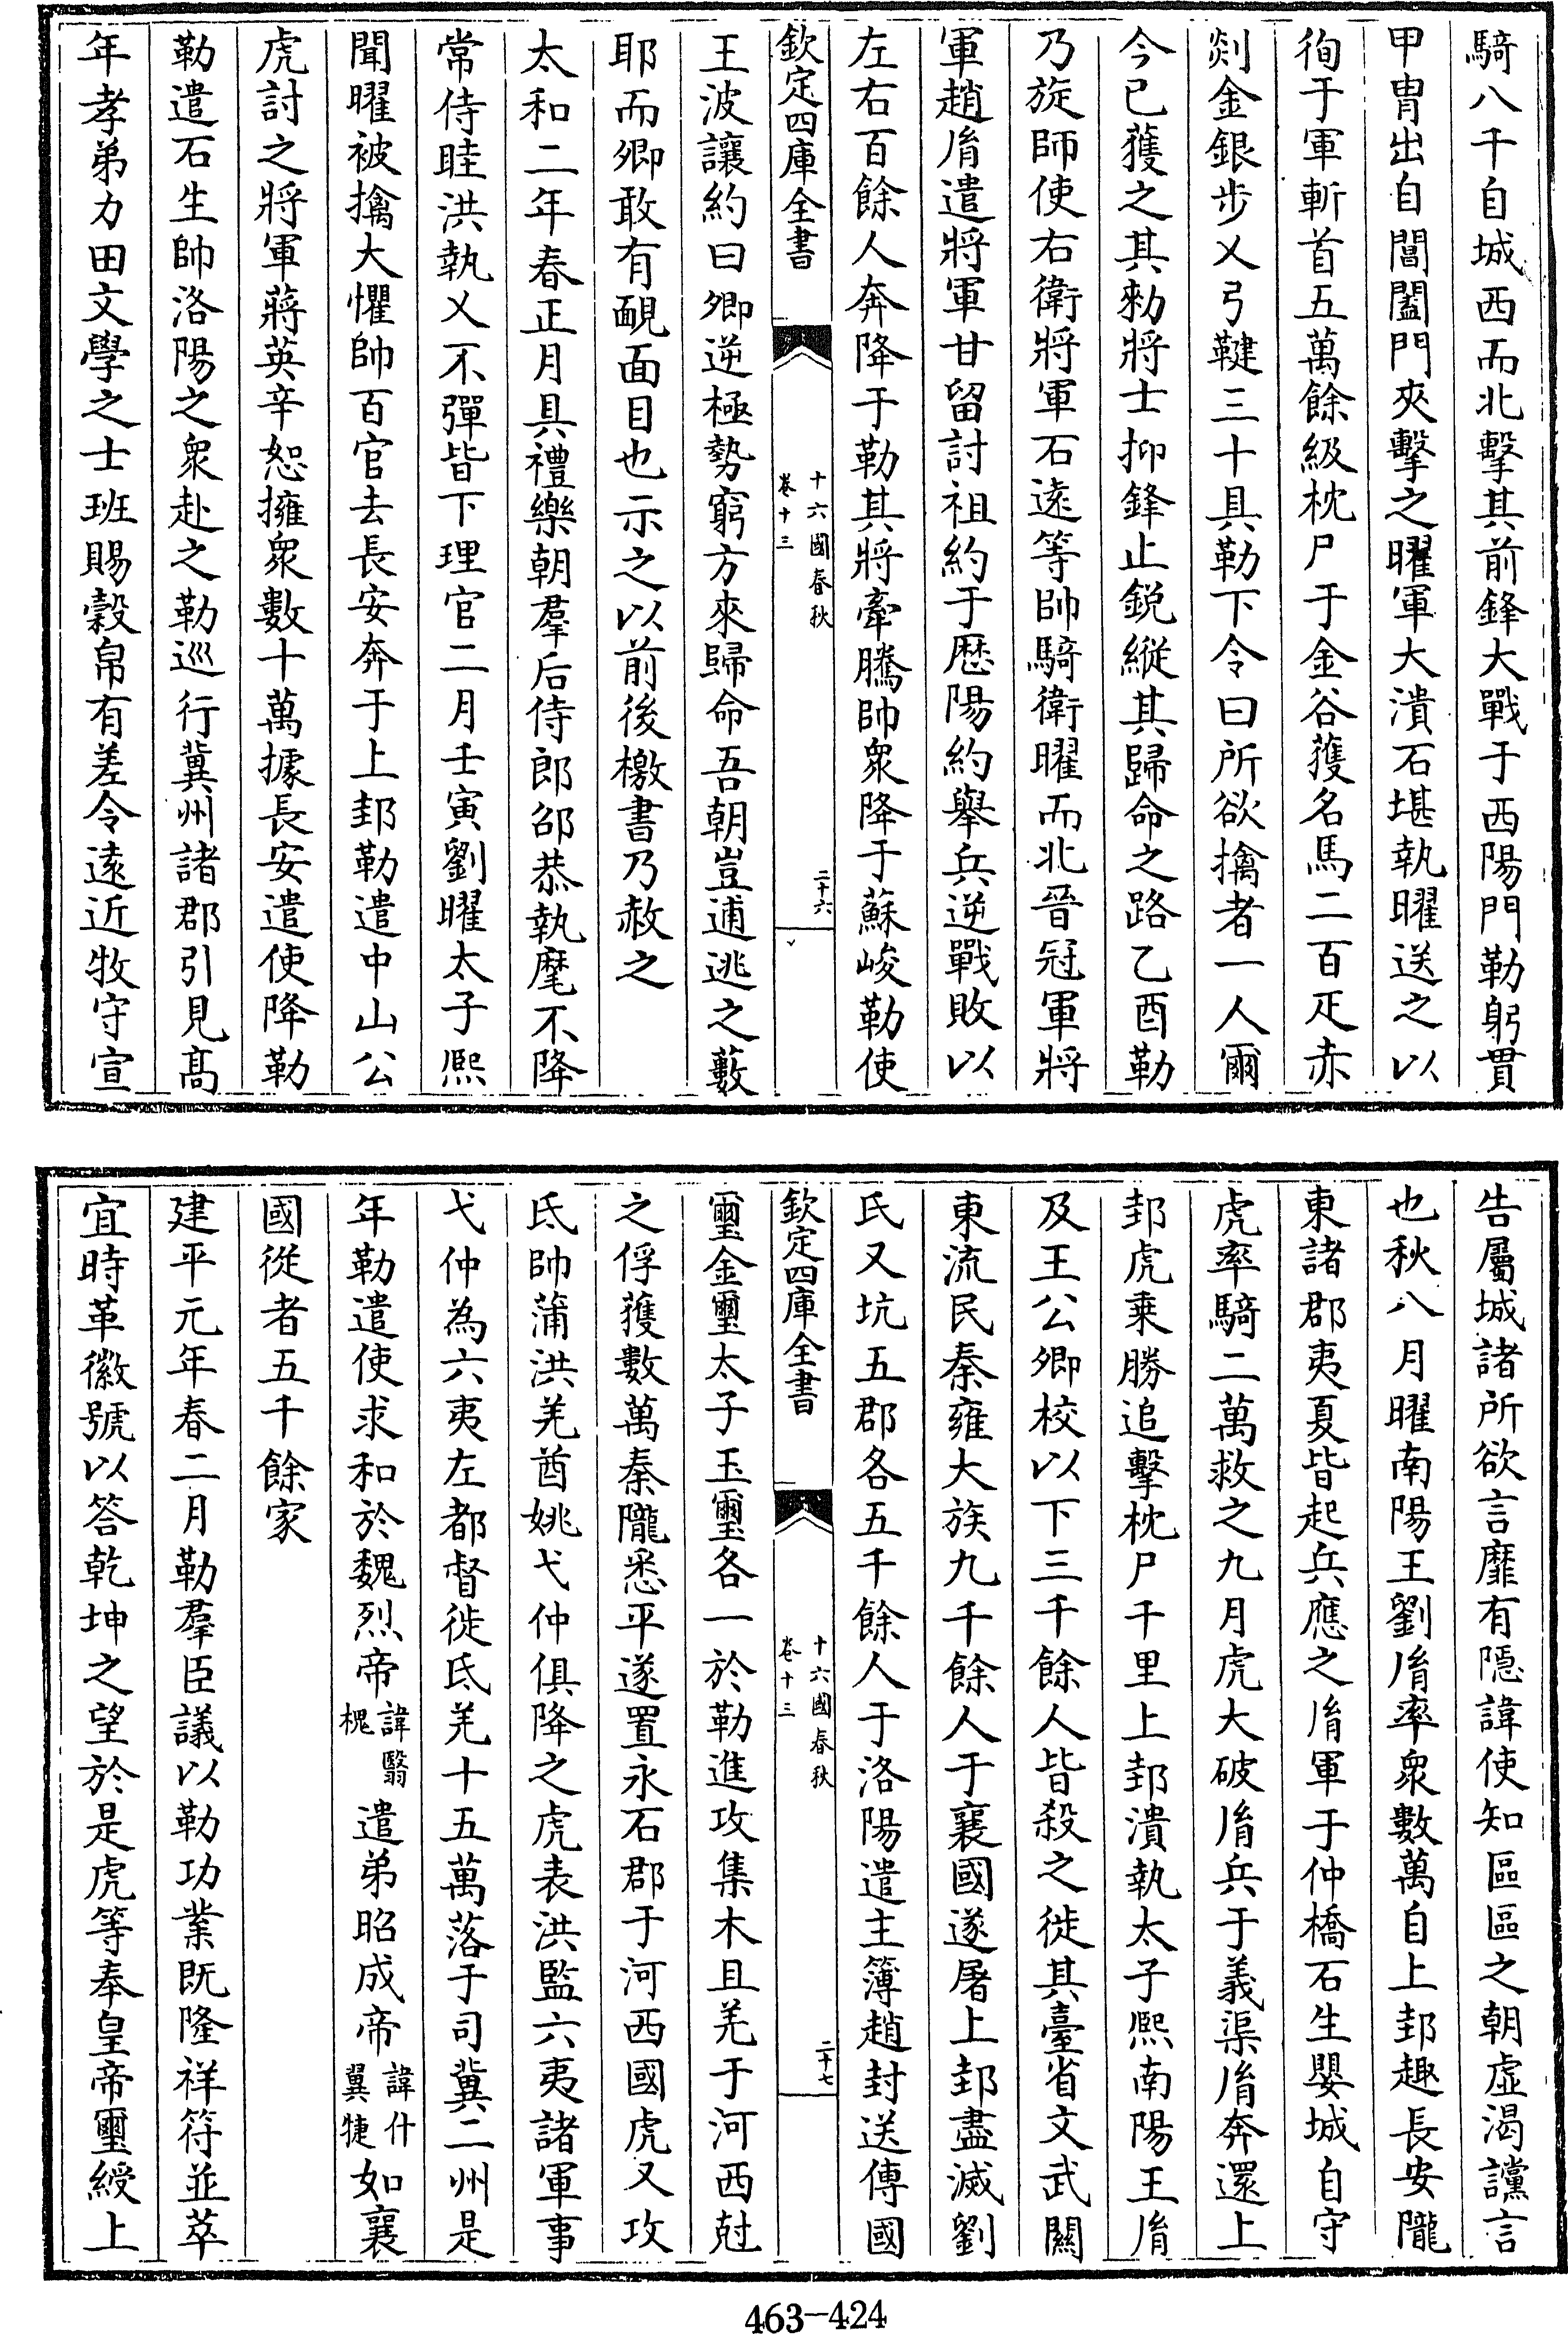 騎八千自城西而北擊其前鋒大戰于西陽門勒躬貫
甲胄出自閶闔門夾擊之曜軍大潰石堪執曜送之以
徇于軍斬首五萬餘級枕尸于金谷獲名馬二百疋赤
剡金銀步乂弓鞬三十具勒下令曰所欲擒者一人爾
今已獲之其勑將士抑鋒止銳縱其歸命之路乙酉勒
乃旋師使右衛將軍石遠等帥騎衛曜而北晉冠軍將
軍趙胤遣將軍甘留討祖約于歷陽約舉兵逆戰敗以
左右百餘人奔降于勒其將牽騰帥眾降于蘇峻勒使
欽定四庫全書
十六國春秋
卷十三
二十六
王波讓約曰卿逆極勢窮方來歸命吾朝豈逋逃之藪
耶而卿敢有靦面目也示之以前後檄書乃赦之
太和二年春正月具禮樂朝羣后侍郎邵恭執麾不降
常侍眭洪執乂不彈皆下理官二月壬寅劉曜太子熙
聞曜被擒大懼帥百官去長安奔于上邽勒遣中山公
虎討之將軍蔣英辛恕擁眾數十萬據長安遣使降勒
勒遣石生帥洛陽之眾赴之勒巡行冀州諸郡引見高
年孝弟力田文學之士班賜穀帛有差令遠近牧守宣
告屬城諸所欲言靡有隱諱使知區區之朝虛渴讜言
也秋八月曜南陽王劉胤率眾數萬自上邽趣長安隴
東諸郡夷夏皆起兵應之胤軍于仲橋石生嬰城自守
虎率騎二萬救之九月虎大破胤兵于義渠胤奔還上
邽虎乘勝追擊枕尸千里上邽潰執太子熙南陽王胤
及王公卿校以下三千餘人皆殺之徙其臺省文武關
東流民秦雍大族九千餘人于襄國遂屠上邽盡滅劉
氏又坑五郡各五千餘人于洛陽遣主簿趙封送傳國
欽定四庫全書
十六國春秋
卷十三
二十七
璽金璽太子玉璽各一於勒進攻集木且羌于河西尅
之俘獲數萬秦隴悉平遂置永石郡于河西國虎又攻
氐帥蒲洪羌酋姚弋仲俱降之虎表洪監六夷諸軍事
弋仲為六夷左都督徙氐羌十五萬落于司冀二州是
年勒遣使求和於魏烈帝諱翳槐遣弟昭成帝諱什翼犍如襄
國從者五千餘家
建平元年春二月勒羣臣議以勒功業既隆祥符並萃
宜時革徽號以答乾坤之望於是虎等奉皇帝璽綬上
463-424